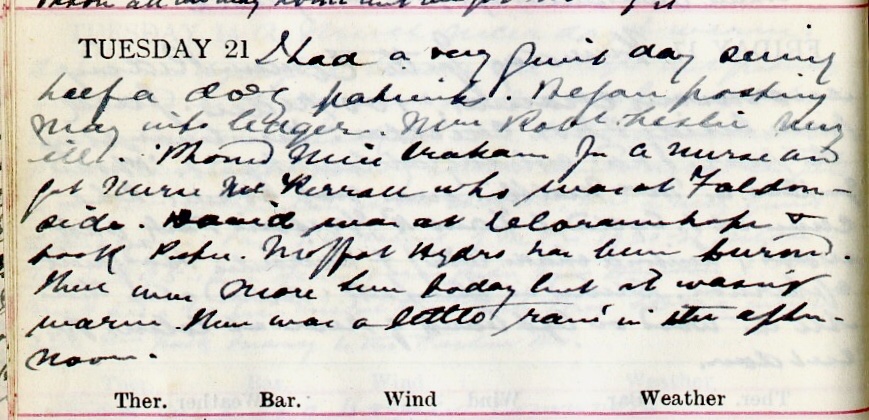 TUESDAY 21 I had a very quiet day seeing
half a doz patients. Began posting
May into ledger. Mrs Leslie very
ill. 'Phoned Miss Graham for a nurse and
got Nurse Mc Kerrow who was at Faldon-
side. David was at &
took Peter. Moffat Hydro has been burned.
There was more sun today but it wasn't
warm. There was a little rain in the after-
noon.
Ther. Bar. Wind Weather